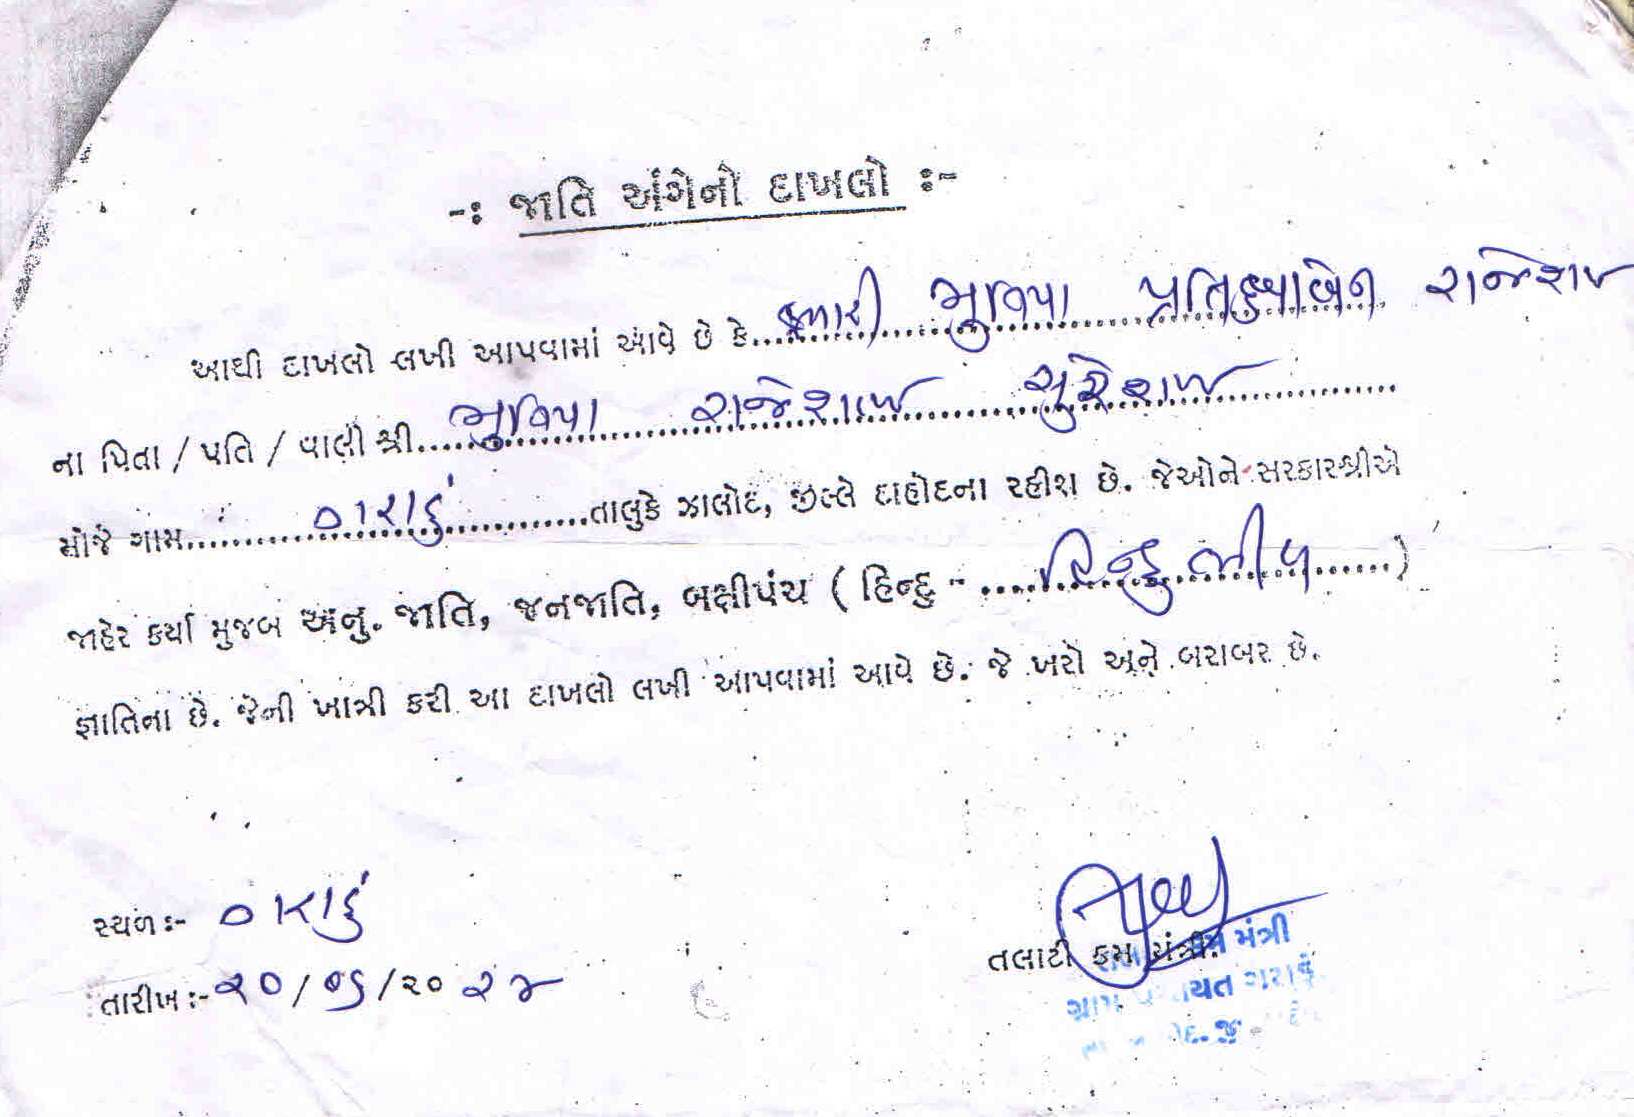 -: જાતિ અંગેનો દાખલો :-
આથી દાખલો લખી આપવામાં આવે છે કે કુમારી મુનિયા પ્રતિક્ષાબેન રાજેશભાઈ
ના પિતા / પતિ / વાલી શ્રી મુનિયા રાજેશભાઈ સુરેશભાઈ
મોજે ગામ ગરાડું તાલુકે ઝાલોદ, જીલ્લે દાહોદના રહીશ છે. જેઓને સરકારશ્રીએ
જાહેર કર્યા મુજબ અનુ. જાતિ, જનજાતિ, બક્ષીપંચ ( હિન્દુ - હિન્દુ ભીલ )
જ્ઞાતિના છે. જેની ખાત્રી કરી આ દાખલો લખી આપવામાં આવે છે. જે ખરો અને બરાબર છે.
સ્થળ :- ગરાડું
તારીખ :- ૨૦/૦૬/૨૦૨૪
તલાટી કમ મંત્રી
મંત્રી
ગ્રામ પંચાયત ગરાડું